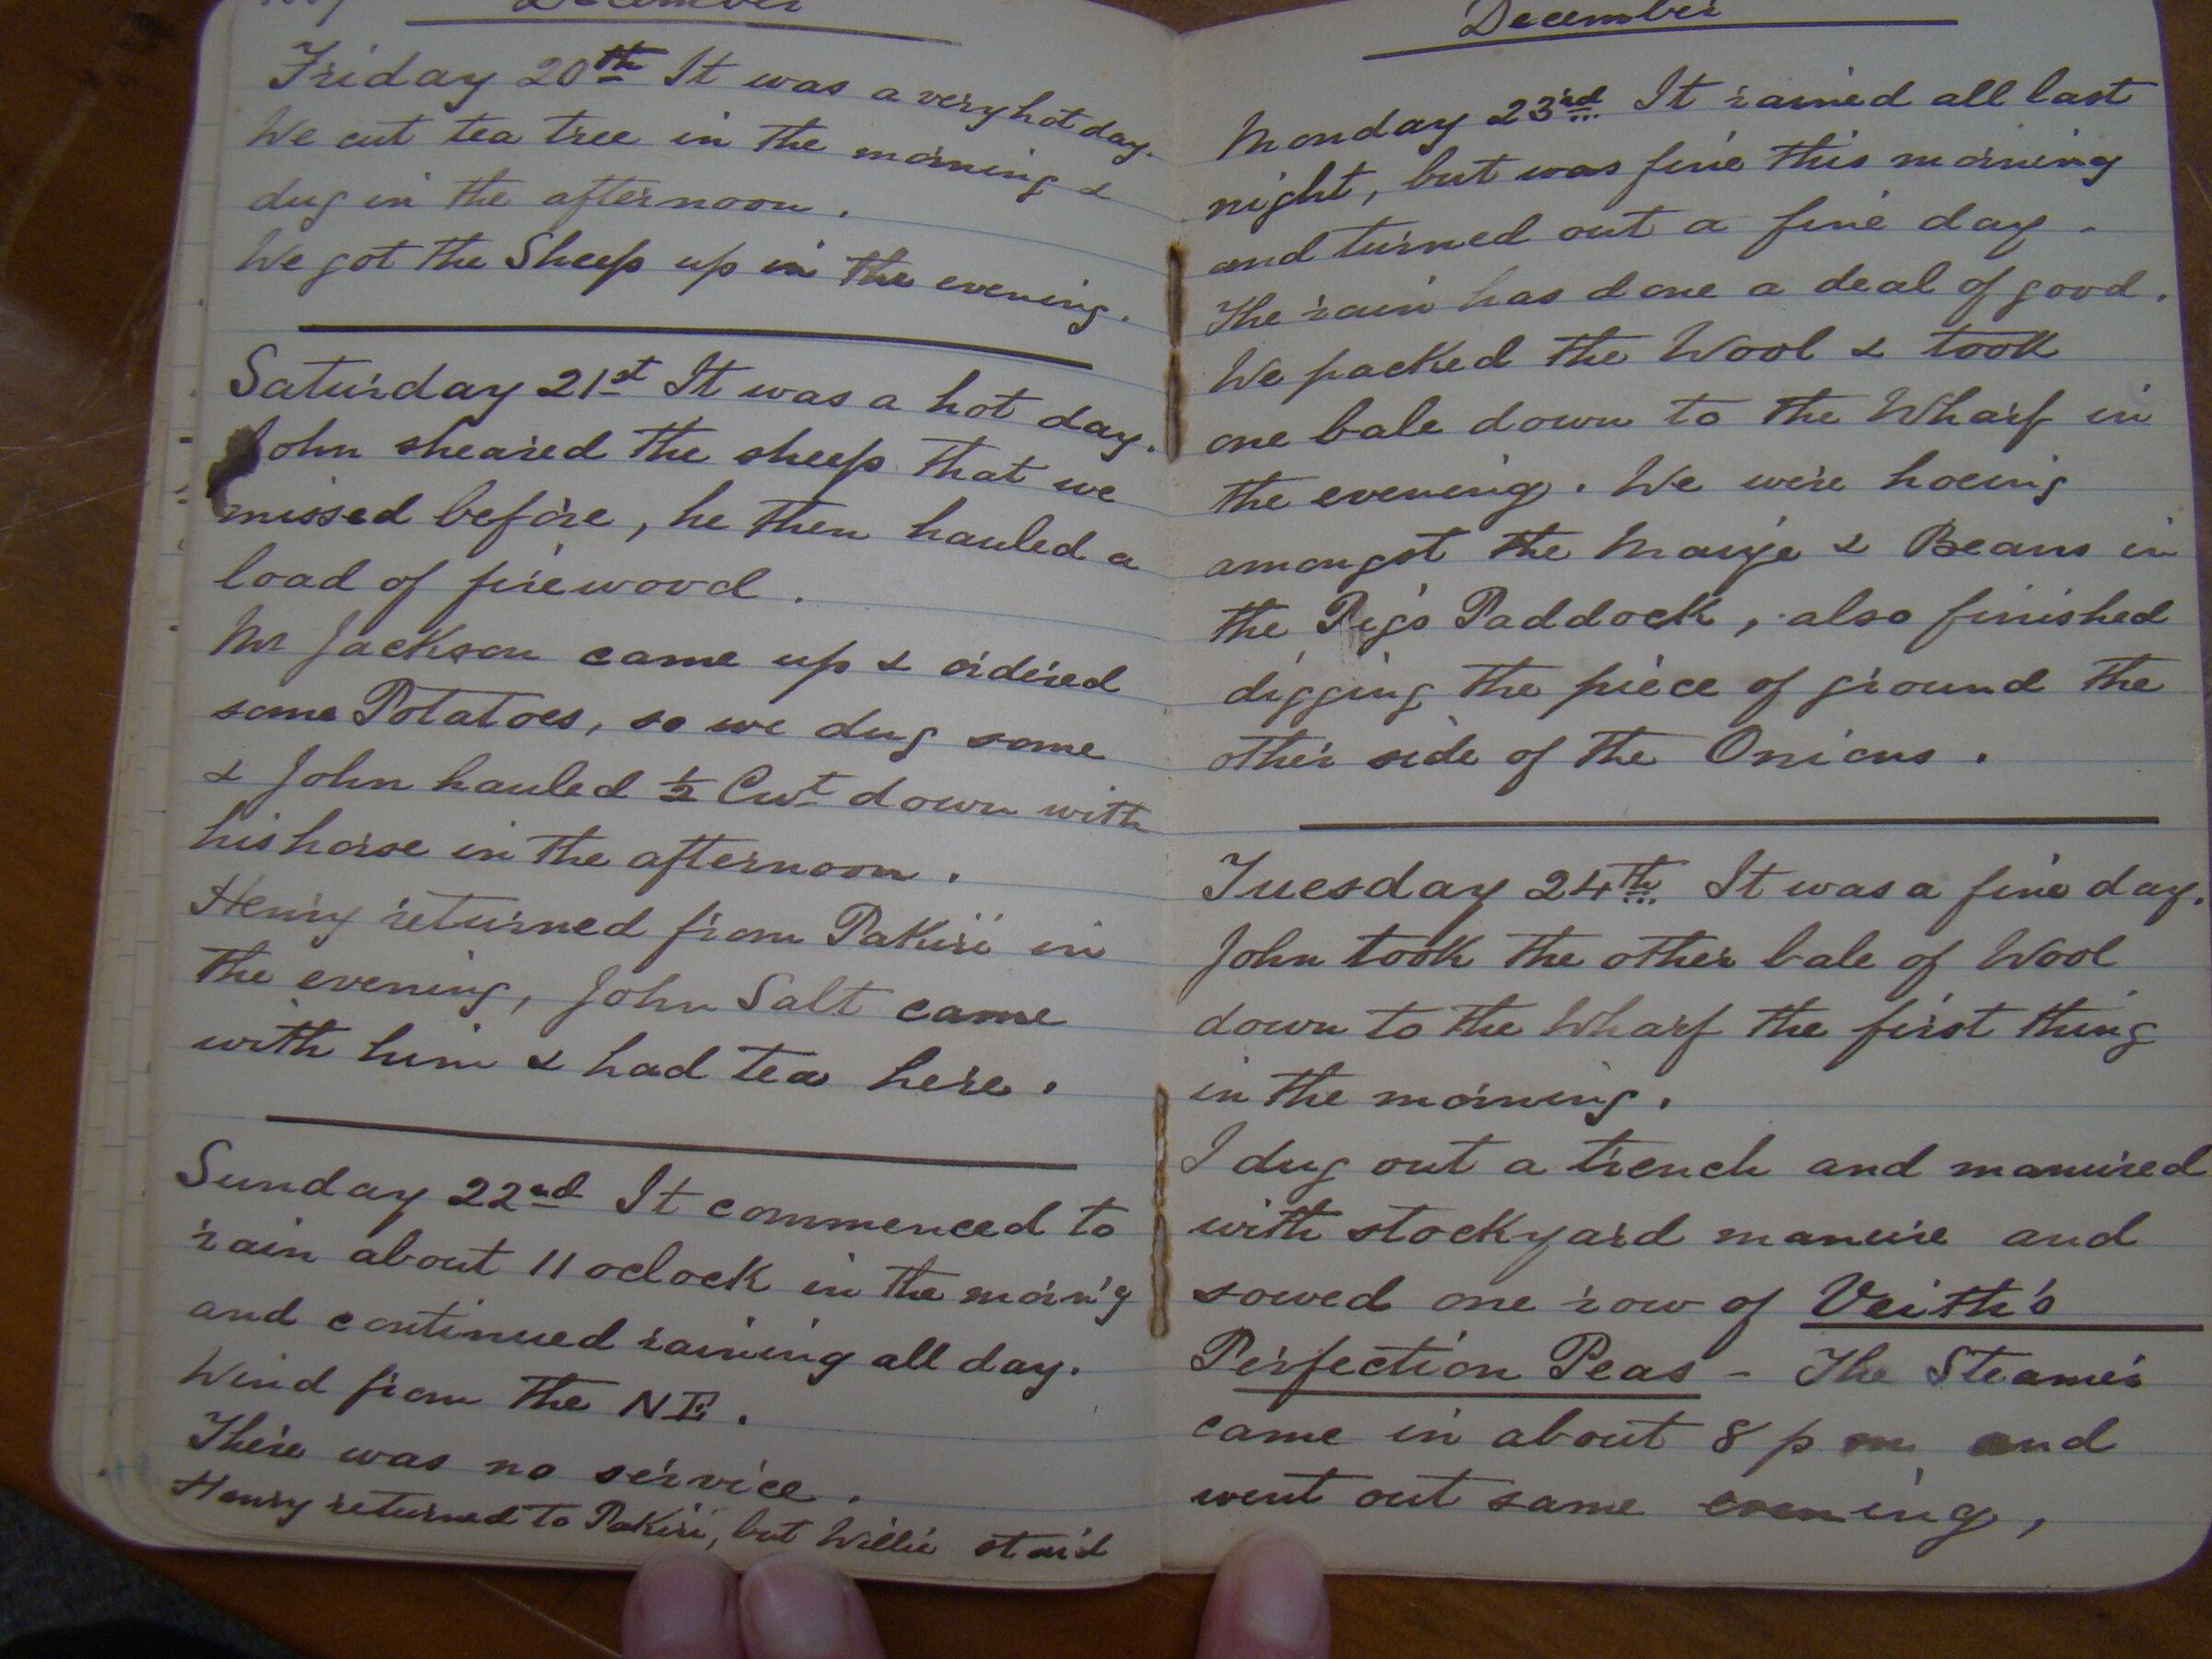 December
Friday 20th It was a very hot day.
We cut tea tree in the morning &
dug in the afternoon.
We got the Sheep up in the evening.
Saturday 21st It was a hot day.
John sheared the sheep that we
missed before, he then hauled a
load of firewood.
Mr Jackson came up & ordered
some Potatoes, so we dug some
& John hauled ½ Cwt down with
his horse in the afternoon.
Henry returned from Pakiri in
the evening, John Salt came
with him & had tea here.
Sunday 22nd It commenced to
rain about 11 oclock in the morn'g
and continued raining all day.
Wind from the NE.
There was no service.
Henry returned to Pakiri, but Willie stai'd
December
Monday 23rd It rained all last
night, but was fine this morning
and turned out a fine day.
The rain has done a deal of good.
We packed the Wool & took
one bale down to the Wharf in
the evening. We were hoeing
amongst the Maize & Beans in
the Pigs Paddock, also finished
digging the piece of ground the
other side of the Onions.
Tuesday 24th It was a fine day.
John took the other bale of Wool
down to the Wharf the first thing
in the morning.
I dug out a trench and manured
with stockyard manure and
sowed one row of Veitth's
Perfection Peas - The Steamer
came in about 8 p m and
went out same evening,